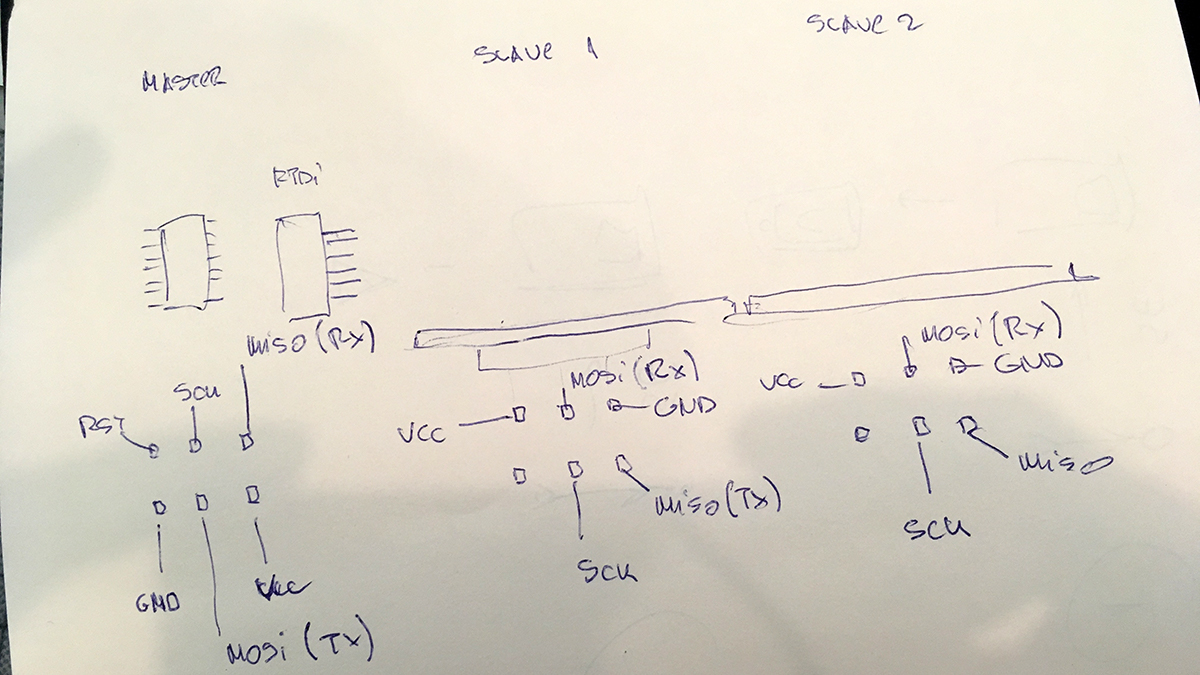 MASTER
SLAVE 1
SLAVE 2
FTDi
MISO (RX)
SCK
RST
GND
VCC
MOSi (TX)
MOSi (RX)
VCC
GND
MISO (TX)
SCK
MOSi (RX)
VCC
GND
MISO
SCK